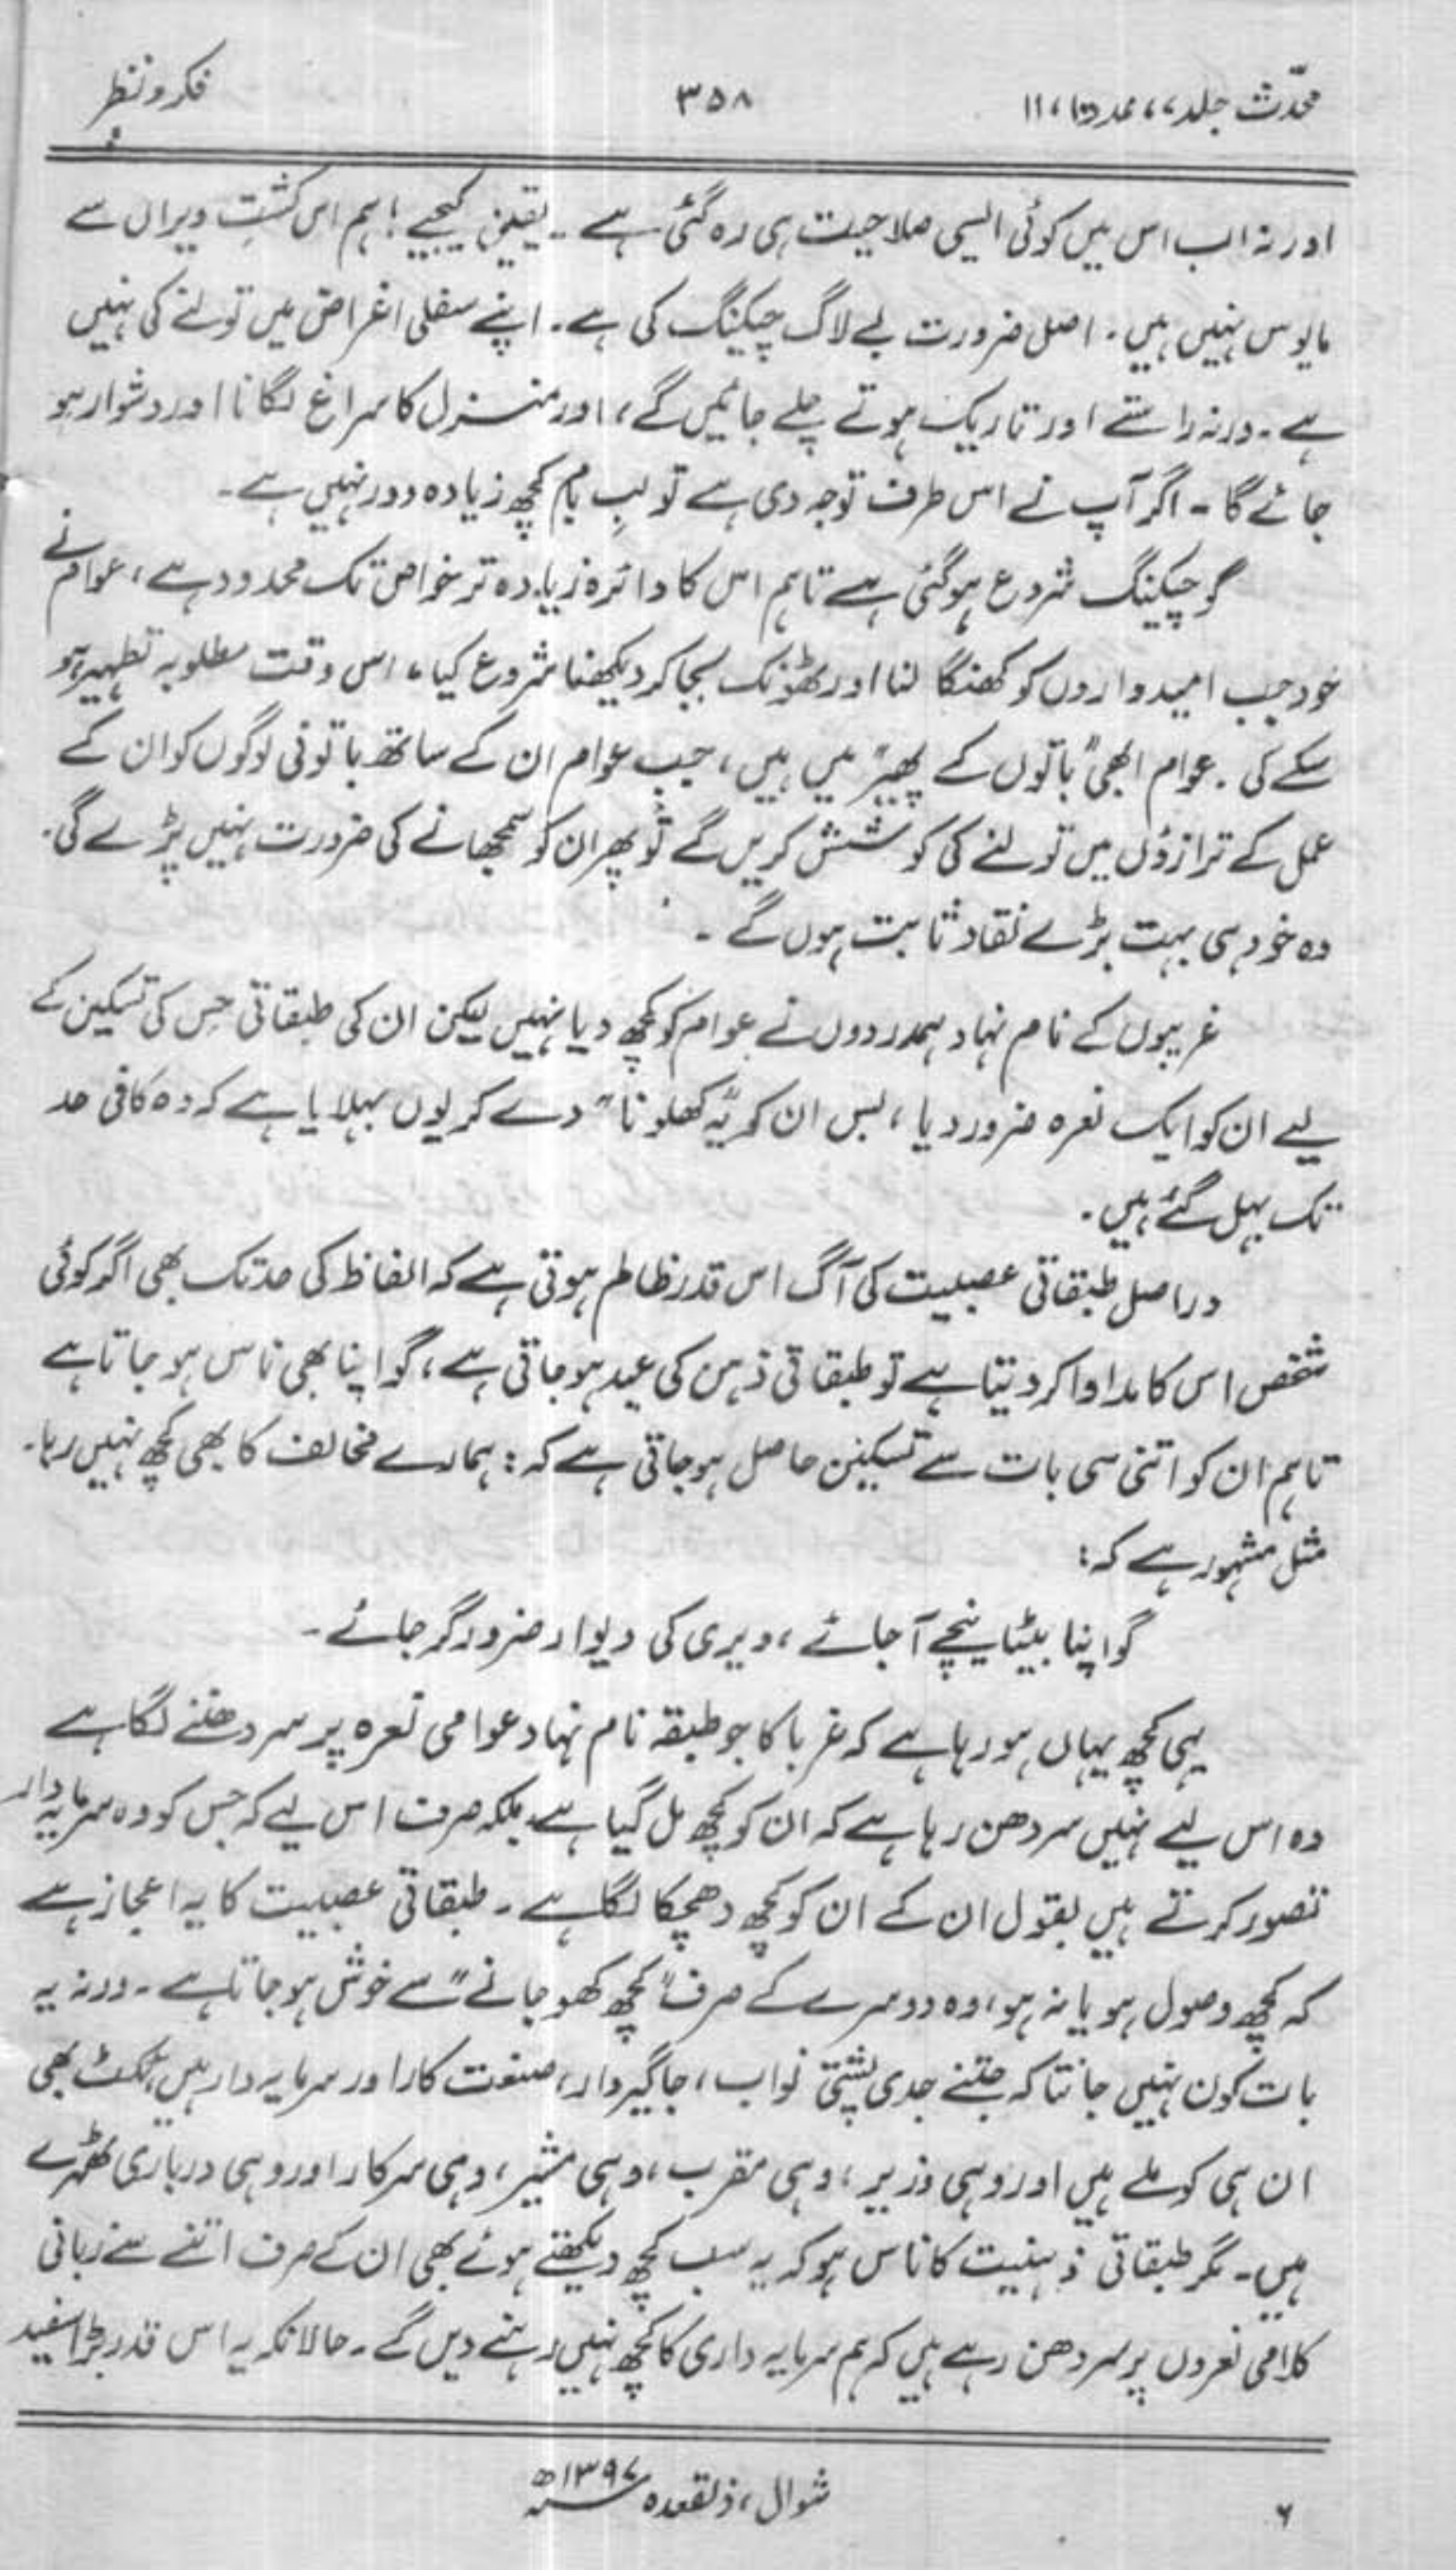 محدّث جلد ۷، عدد ۱۰، ۱۱
۳۵۸
فکر و نظر
اور نہ اب اس میں کوئی ایسی صلاحیت ہی رہ گئی ہے ۔ یقین کیجیے ! ہم اس کشتِ ویراں سے
مایوس نہیں ہیں ۔ اصل ضرورت بے لاگ چیکنگ کی ہے ۔ اپنے سفلی اغراض میں تولنے کی نہیں
ہے ۔ ورنہ راستے اور تاریک ہوتے چلے جائیں گے ، اور منزل کا سراغ لگانا اور دشوار ہو
جائے گا ۔ اگر آپ نے اس طرف توجہ دی ہے تو لبِ بام کچھ زیادہ دور نہیں ہے ۔
گو چیکنگ شروع ہو گئی ہے تاہم اس کا دائرہ زیادہ تر خواص تک محدود ہے ، عوام نے
خود جب امیدواروں کو کھنگالنا اور ٹھونک بجا کر دیکھنا شروع کیا ، اس وقت مطلوبہ تطہیر ہو
سکے گی ۔ عوام ابھی "باتوں کے پھیر" میں ہیں ، جب عوام ان کے ساتھ باتونی لوگوں کو ان کے
عمل کے ترازوؤں میں تولنے کی کوشش کریں گے تو پھر ان کو سمجھانے کی ضرورت نہیں پڑے گی ۔
وہ خود ہی بہت بڑے نقاد ثابت ہوں گے ۔
غریبوں کے نام نہاد ہمدردوں نے عوام کو کچھ دیا نہیں لیکن ان کی طبقاتی حِس کی تسکین کے
لیے ان کو ایک نعرہ ضرور دیا ، بس ان کو یہ "کھلونا" دے کر یوں بہلایا ہے کہ وہ کافی حد
تک بہل گئے ہیں ۔
دراصل طبقاتی عصبیت کی آگ اس قدر ظالم ہوتی ہے کہ الفاظ کی حد تک بھی اگر کوئی
شخص اس کا مداوا کر دیتا ہے تو طبقاتی ذہن کی عید ہو جاتی ہے ، گو اپنا بھی ناس ہو جاتا ہے
تاہم ان کو اتنی سی بات سے تسکین حاصل ہو جاتی ہے کہ : ہمارے مخالف کا بھی کچھ نہیں رہا ۔
مثل مشہور ہے کہ :
گو اپنا بیٹا نیچے آ جائے ، ویری کی دیوار ضرور گر جائے ۔
یہی کچھ یہاں ہو رہا ہے کہ غربا کا جو طبقہ نام نہاد عوامی نعرہ پر سر دھننے لگا ہے
وہ اس لیے نہیں سر دھن رہا ہے کہ ان کو کچھ مل گیا ہے بلکہ صرف اس لیے کہ جس کو وہ سرمایہ دار
تصور کرتے ہیں بقول ان کے ان کو کچھ دھچکا لگا ہے ۔ طبقاتی عصبیت کا یہ اعجاز ہے
کہ کچھ وصول ہو یا نہ ہو ، وہ دوسرے کے صرف "کچھ کھو جانے" سے خوش ہو جاتا ہے ۔ ورنہ یہ
بات کون نہیں جانتا کہ جتنے جدی پشتی نواب ، جاگیردار ، صنعت کار اور سرمایہ دار ہیں ، ٹکٹ بھی
ان ہی کو ملے ہیں اور وہی وزیر ، وہی مقرب ، وہی مشیر ، وہی سرکار اور وہی درباری ٹھہرے
ہیں ۔ مگر طبقاتی ذہنیت کا ناس ہو کہ یہ سب کچھ دیکھتے ہوئے بھی ان کے صرف اتنے سے زبانی
کلامی نعروں پر سر دھن رہے ہیں کہ ہم سرمایہ داری کا کچھ نہیں رہنے دیں گے ۔ حالانکہ یہ اس قدر بڑا سفید
شوال ، ذلقعدہ ۱۳۹۷ھ
۶